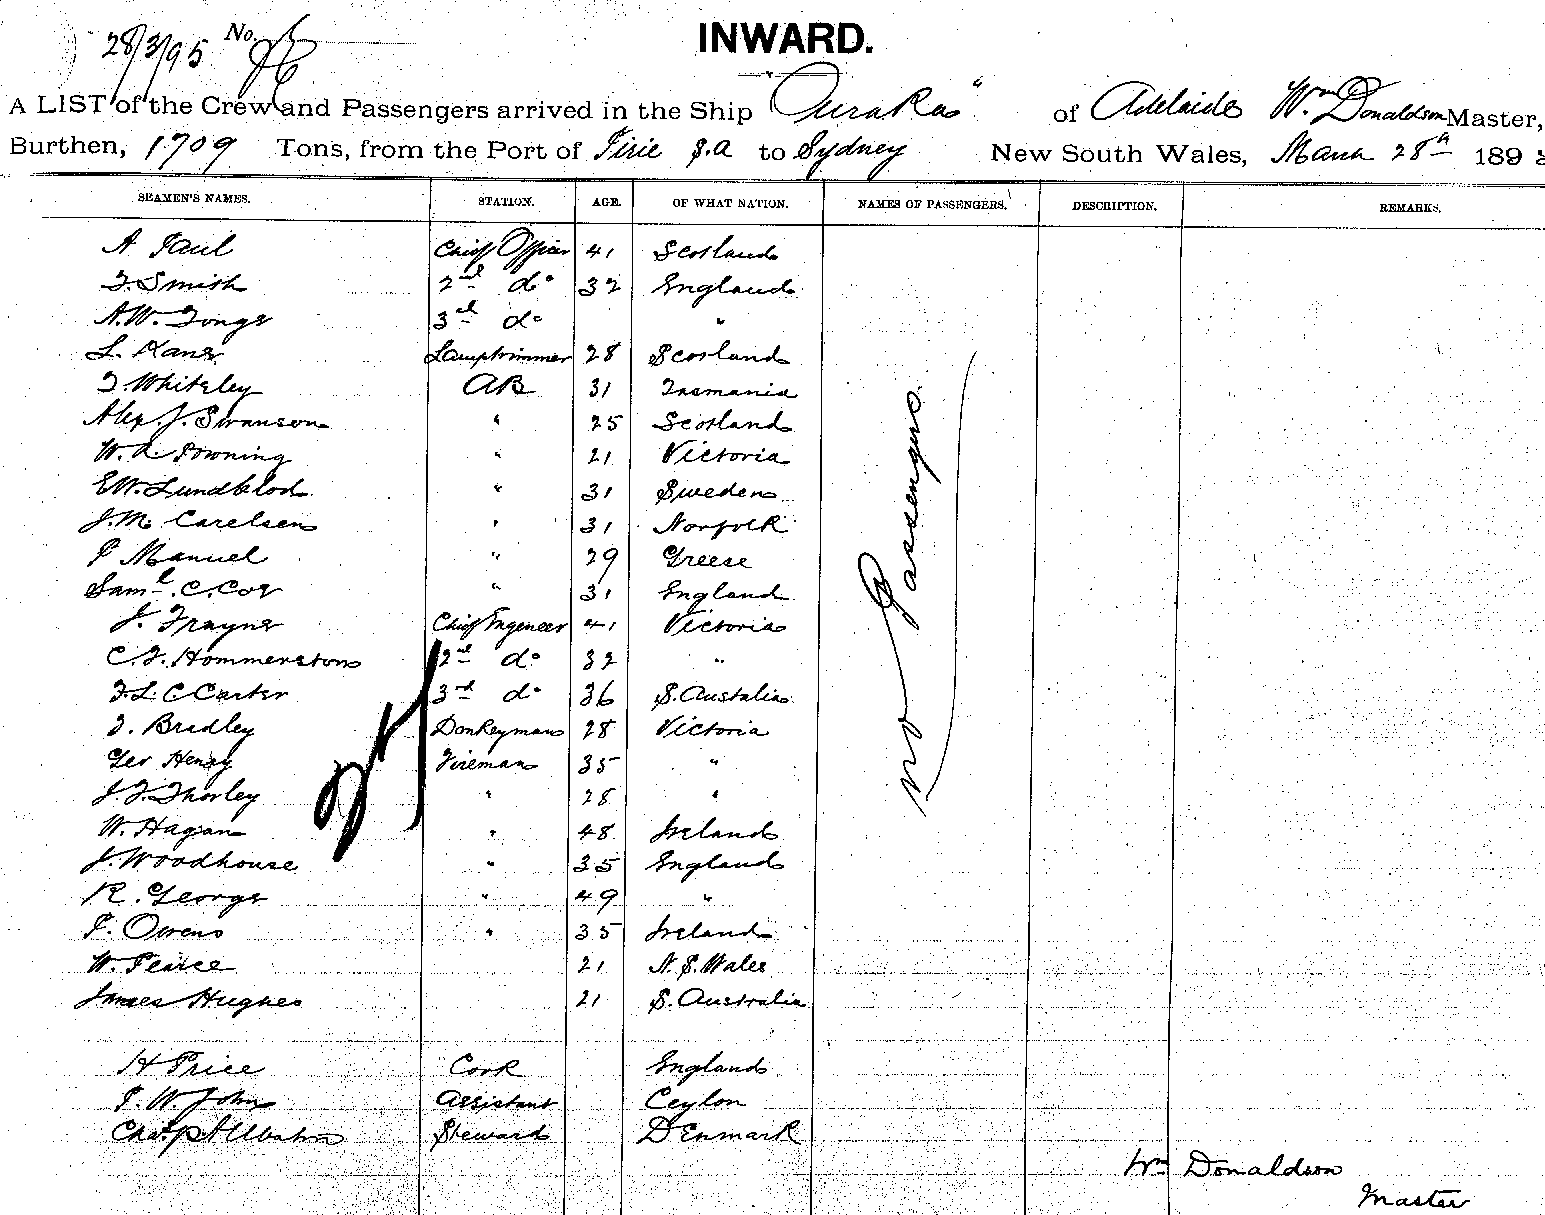 28/3/95 No.
INWARD.
A LIST of the Crew and Passengers arrived in the Ship "OuraKa" of Adelaide Wm Donaldson Master,
Burthen, 1709 Tons, from the Port of Pirie S.A to Sydney New South Wales, March 28th 189
SEAMEN'S NAMES. STATION. AGE. OF WHAT NATION. NAMES OF PASSENGERS. DESCRIPTION. REMARKS.
A Paul Chief Officer 41 Scotland
F. Smith 2nd do 32 England
A.W. Tonge 3rd do "
L. Kane Lamptrimmer 28 Scotland
T Whiteley AB 31 Tasmania
Alex. J. Swanson " 25 Scotland
W. A Downing " 21 Victoria
E.W. Lundblod " 31 Sweden
J.M. Carelsen " 31 Norfolk
P Manuel " 29 Greese
Saml. C. Cox " 31 England
J. Frayne Chief Engeneer 41 Victoria
C.F. Hommerston 2nd do 32 "
F.L. C Carter 3rd do 36 S. Austalia
T. Bradley Donkeyman 28 Victoria
Geo Henry Fireman 35 "
J.F. Thorley " 28 "
W. Hagan " 48 Ireland
J. Woodhouse " 35 England
R. George " 49 "
P. Owens " 35 Ireland
W. Pearce 21 N.S. Wales
James Hughes 21 S. Australia
H Price Cook England
P. W. John Assistant Ceylon
Steward Denmark
no Passengers.
Wm Donaldson
Master